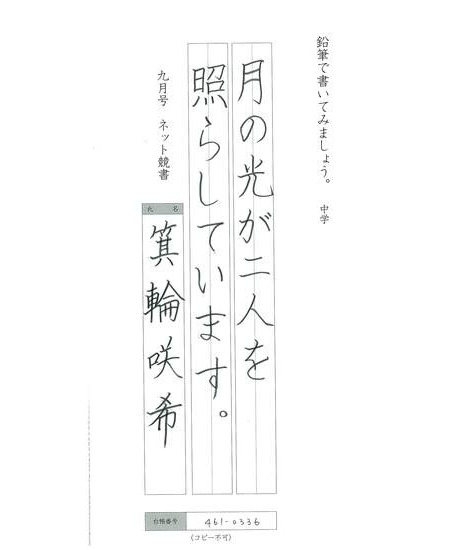 鉛筆で書いてみましょう。 中学
月の光が二人を
照らしています。
九月号 ネット競書
氏 名
箕輪咲希
台帳番号 461-0336
(コピー不可)